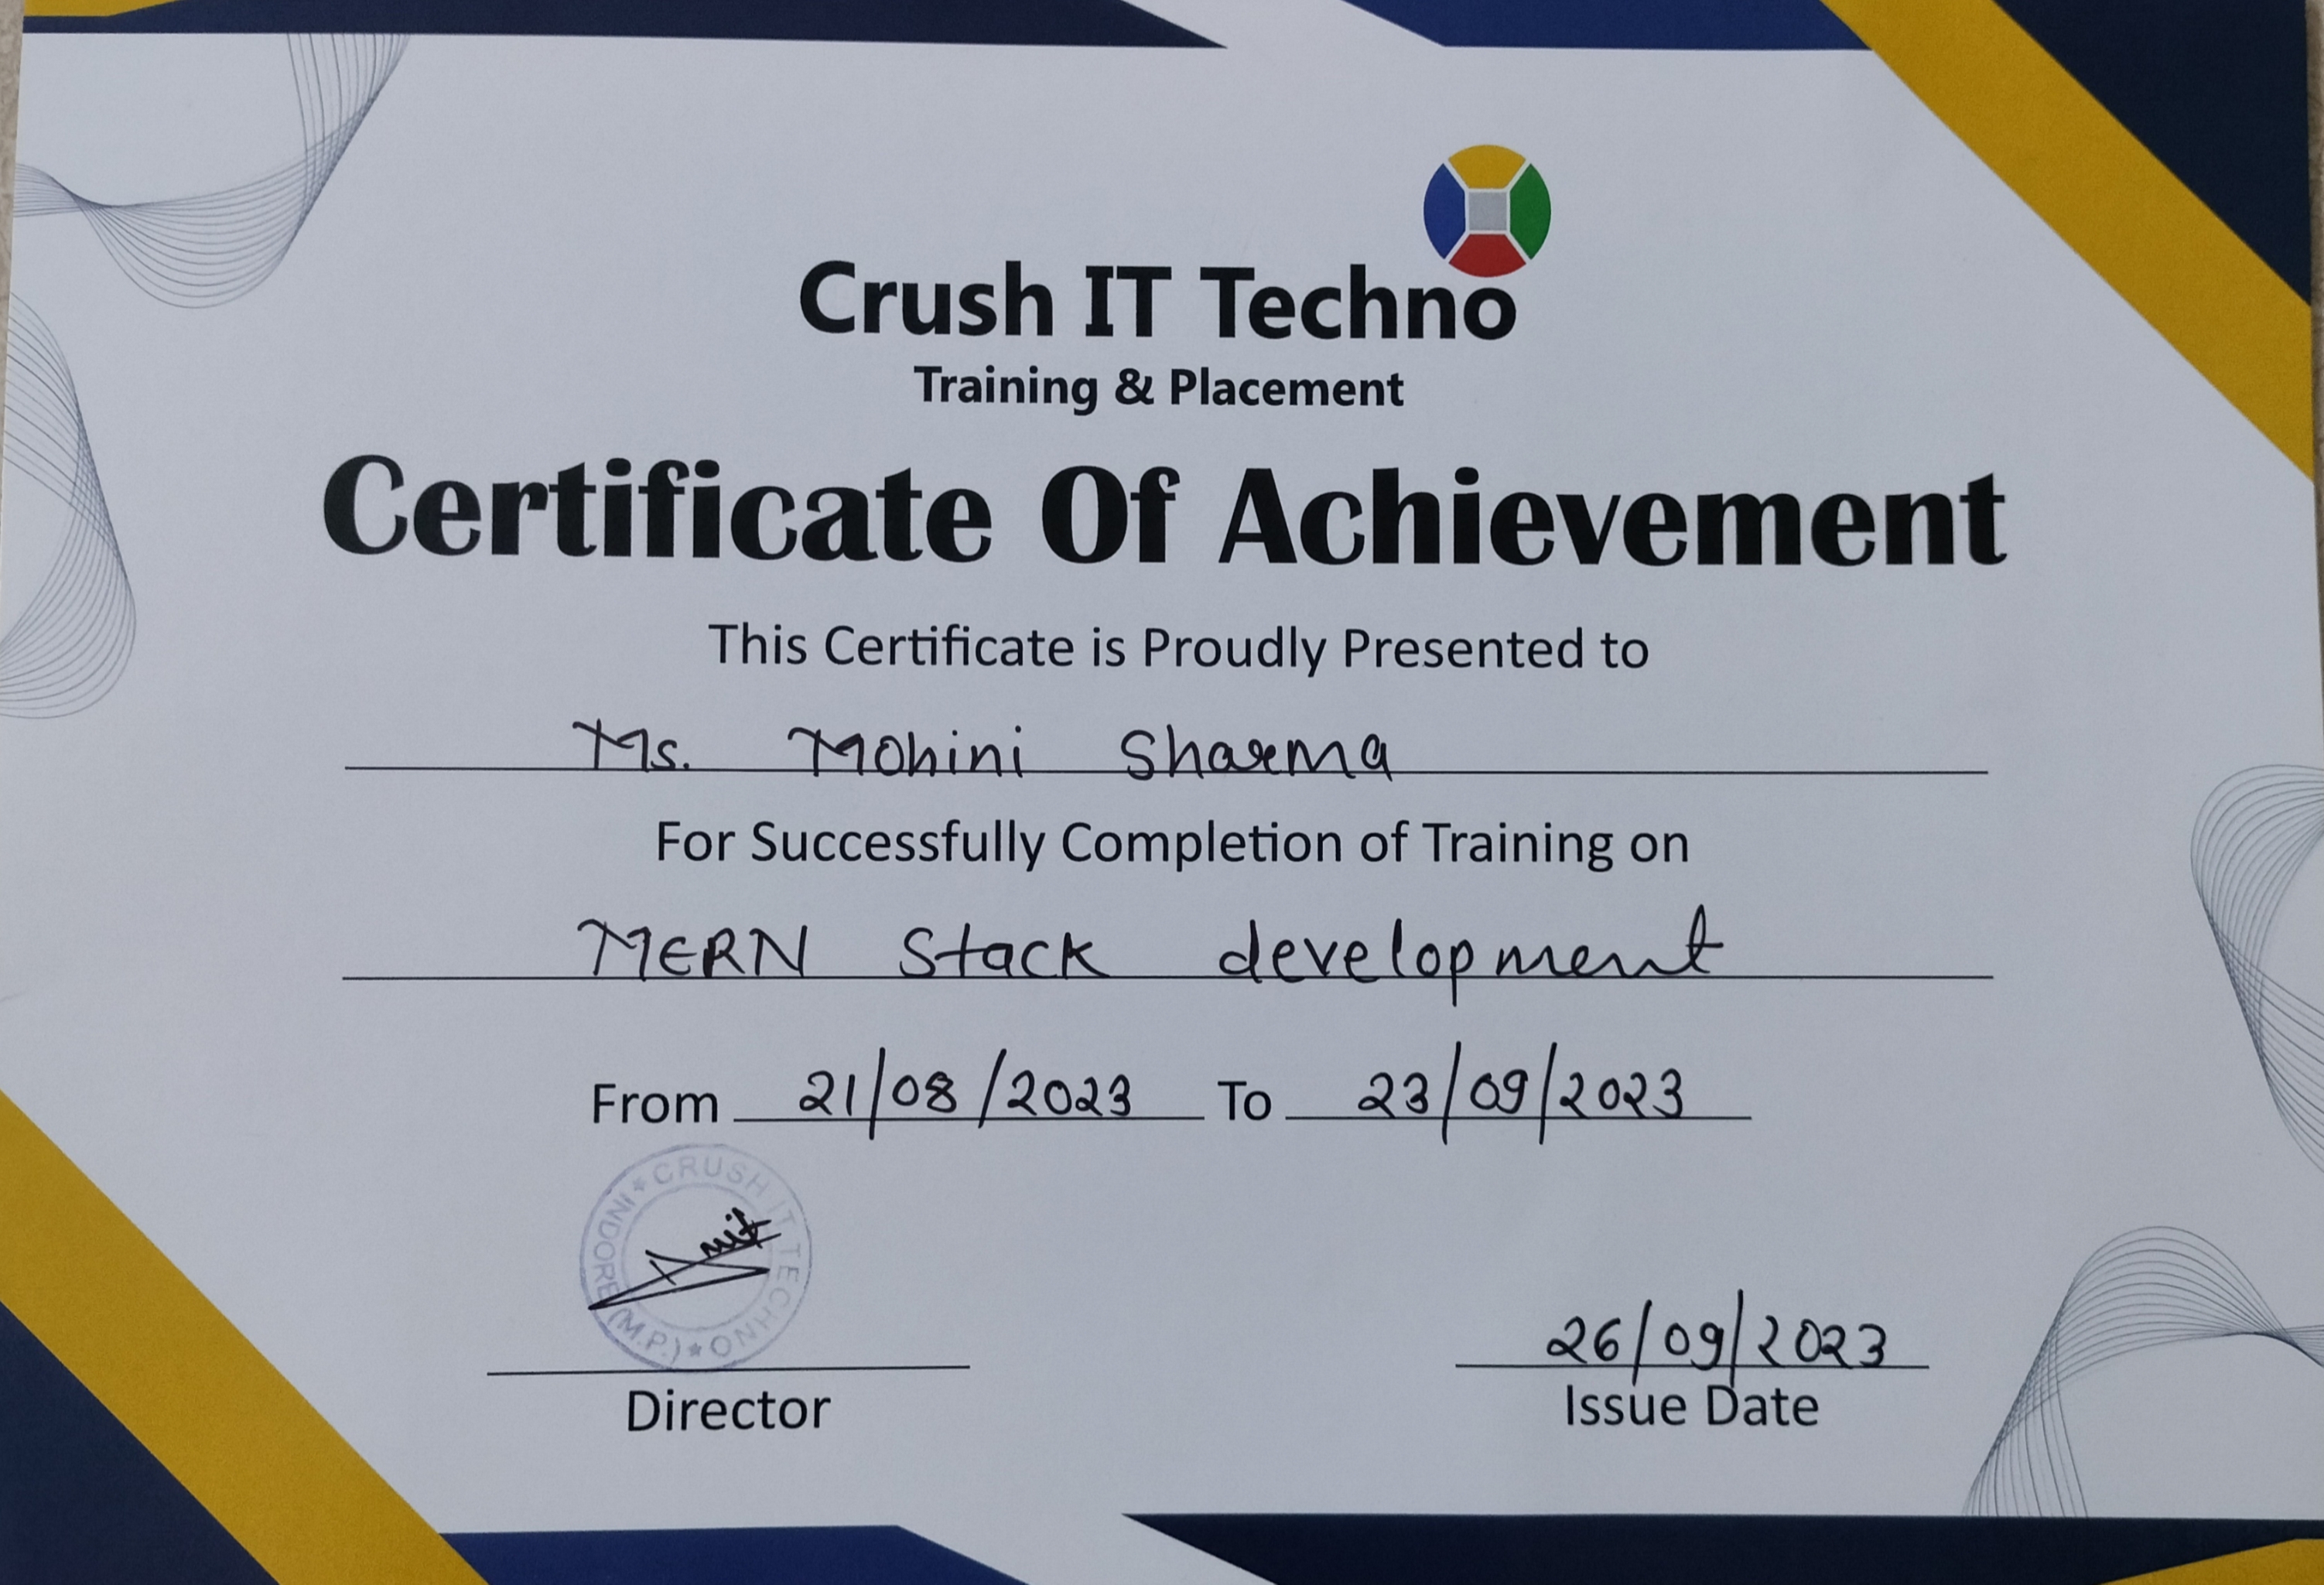 Crush IT Techno
Training & Placement
Certificate Of Achievement
This Certificate is Proudly Presented to
Ms. Mohini Sharma
For Successfully Completion of Training on
MERN Stack development
From 21/08/2023 To 23/09/2023
★ CRUSH IT TECHNO ★ INDORE (M.P.)
Amit
26/09/2023
Director
Issue Date